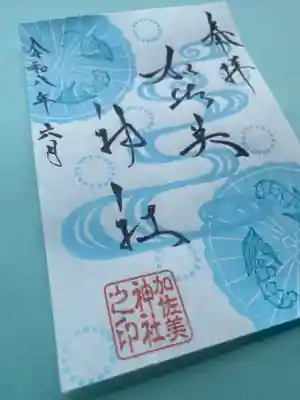 奉拝
加佐美
神社
令和八年六月
加佐美
神社
之印